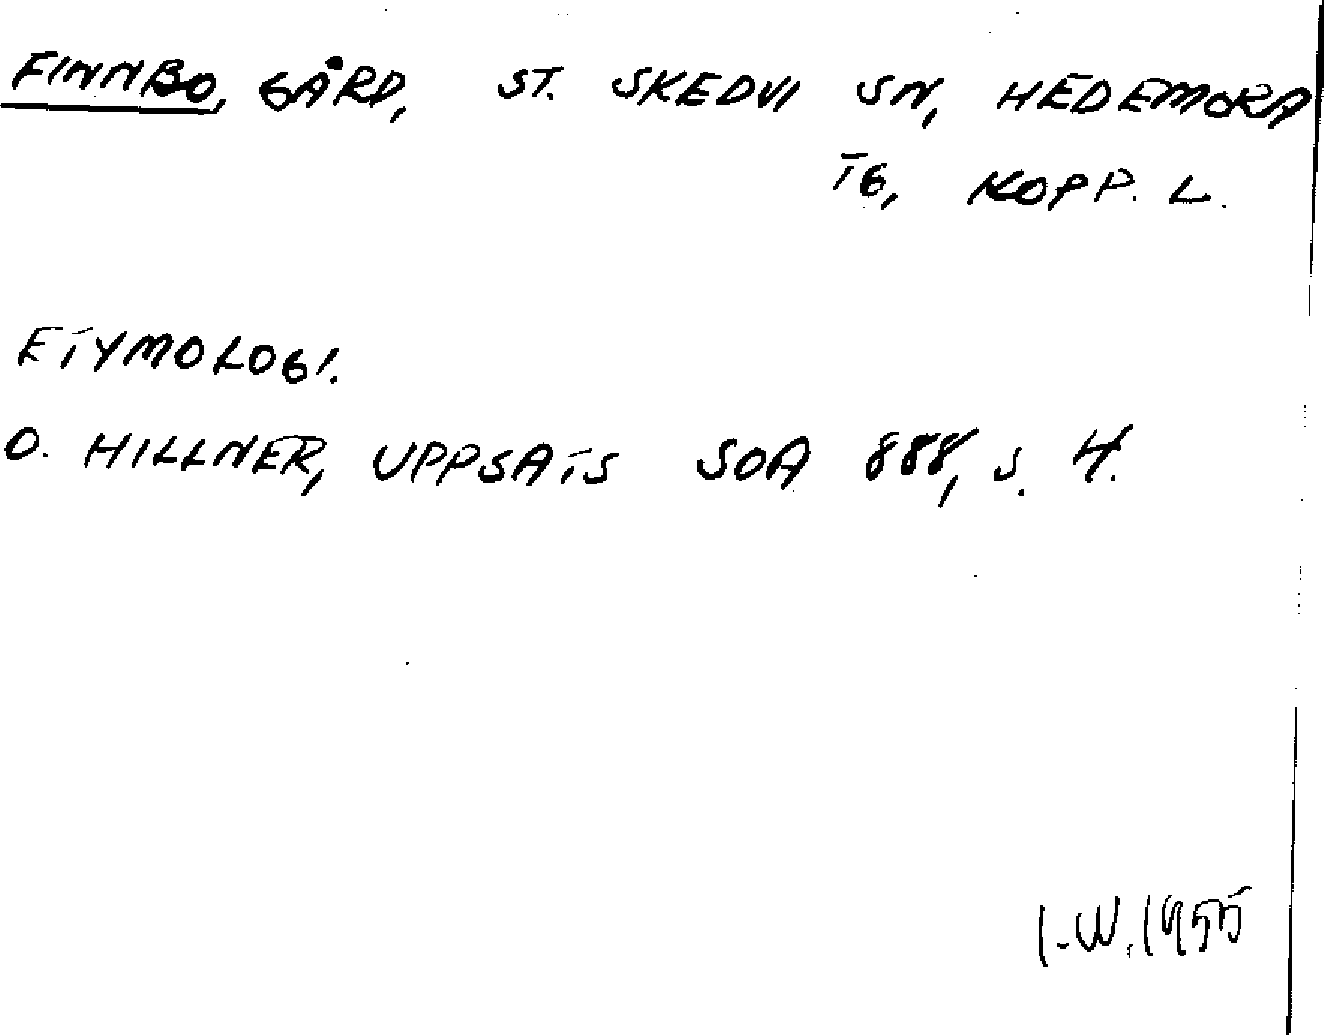 FINNBO, GÅRD, ST. SKEDVI SN, HEDEMORA
TG, KOPP. L.
ETYMOLOGI.
O. HILLNER, UPPSATS SOA 888, S. 4.
I.W. 1955